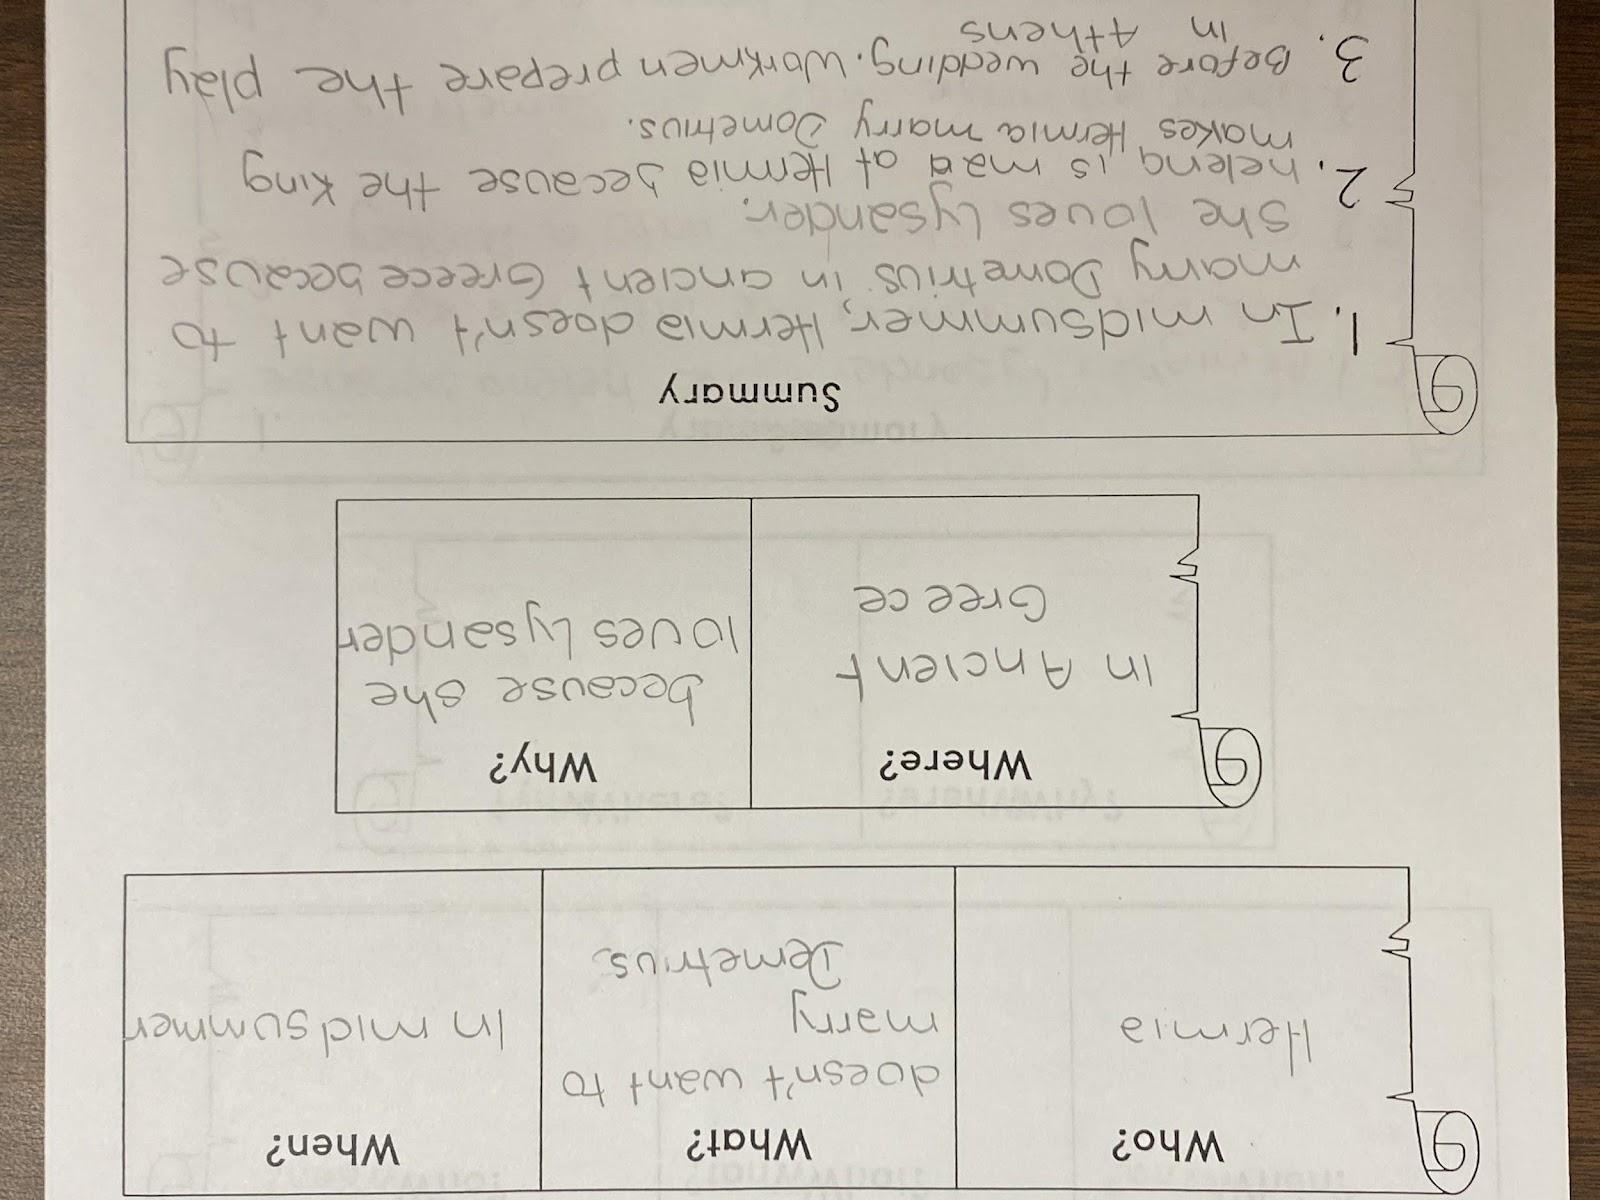 Who?
What?
When?
Hermia
doesn't want to
marry
Demetrius
In midsummer
Where?
Why?
In Ancient
Greece
because she
loves Lysander
Summary
1. In midsummer, Hermia doesn't want to
marry Dometrius in ancient Greece because
she loves Lysander.
2. helena is mad at Hermia because the King
makes Hermia marry Dometrius.
3. Before the wedding. Workmen prepare the play
in Athens